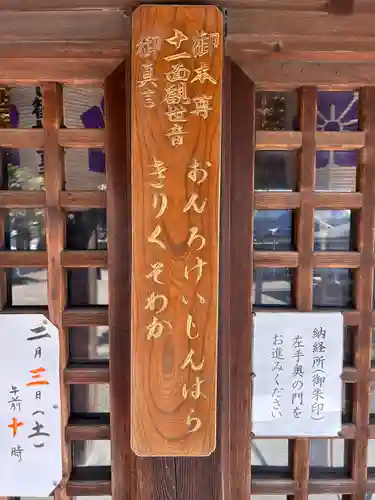 御本尊
十一面観世音
御真言
おんろけいじんばら
きりくそわか
納経所(御朱印)
左手奥の門を
お進みください
二月三日(土)
午前十時